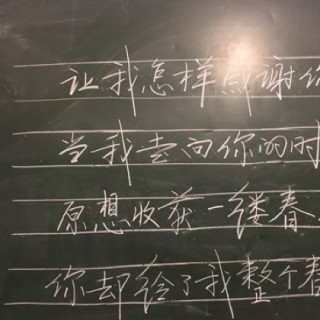 让我怎样感谢你
当我走向你的时
原想收获一缕春
你却给了我整个春